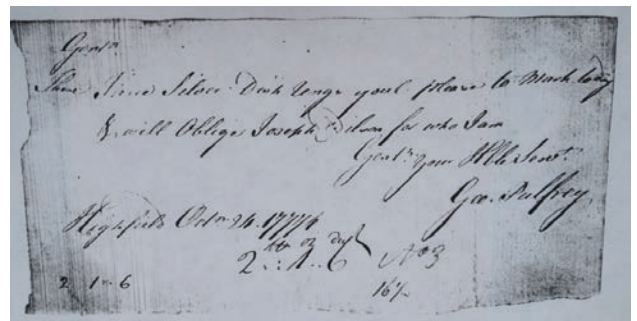 Gentn
Three Pieces Silver Dish Rings youl please to Mark today
& will Oblige Joseph Wilson for who I am
Gentn. Your Hble Servt.
Geo. Palfrey
Octr. 24. 1777
lb oz dwt
2 : 1 . . 6 No 3
2 1 . . 6
16/